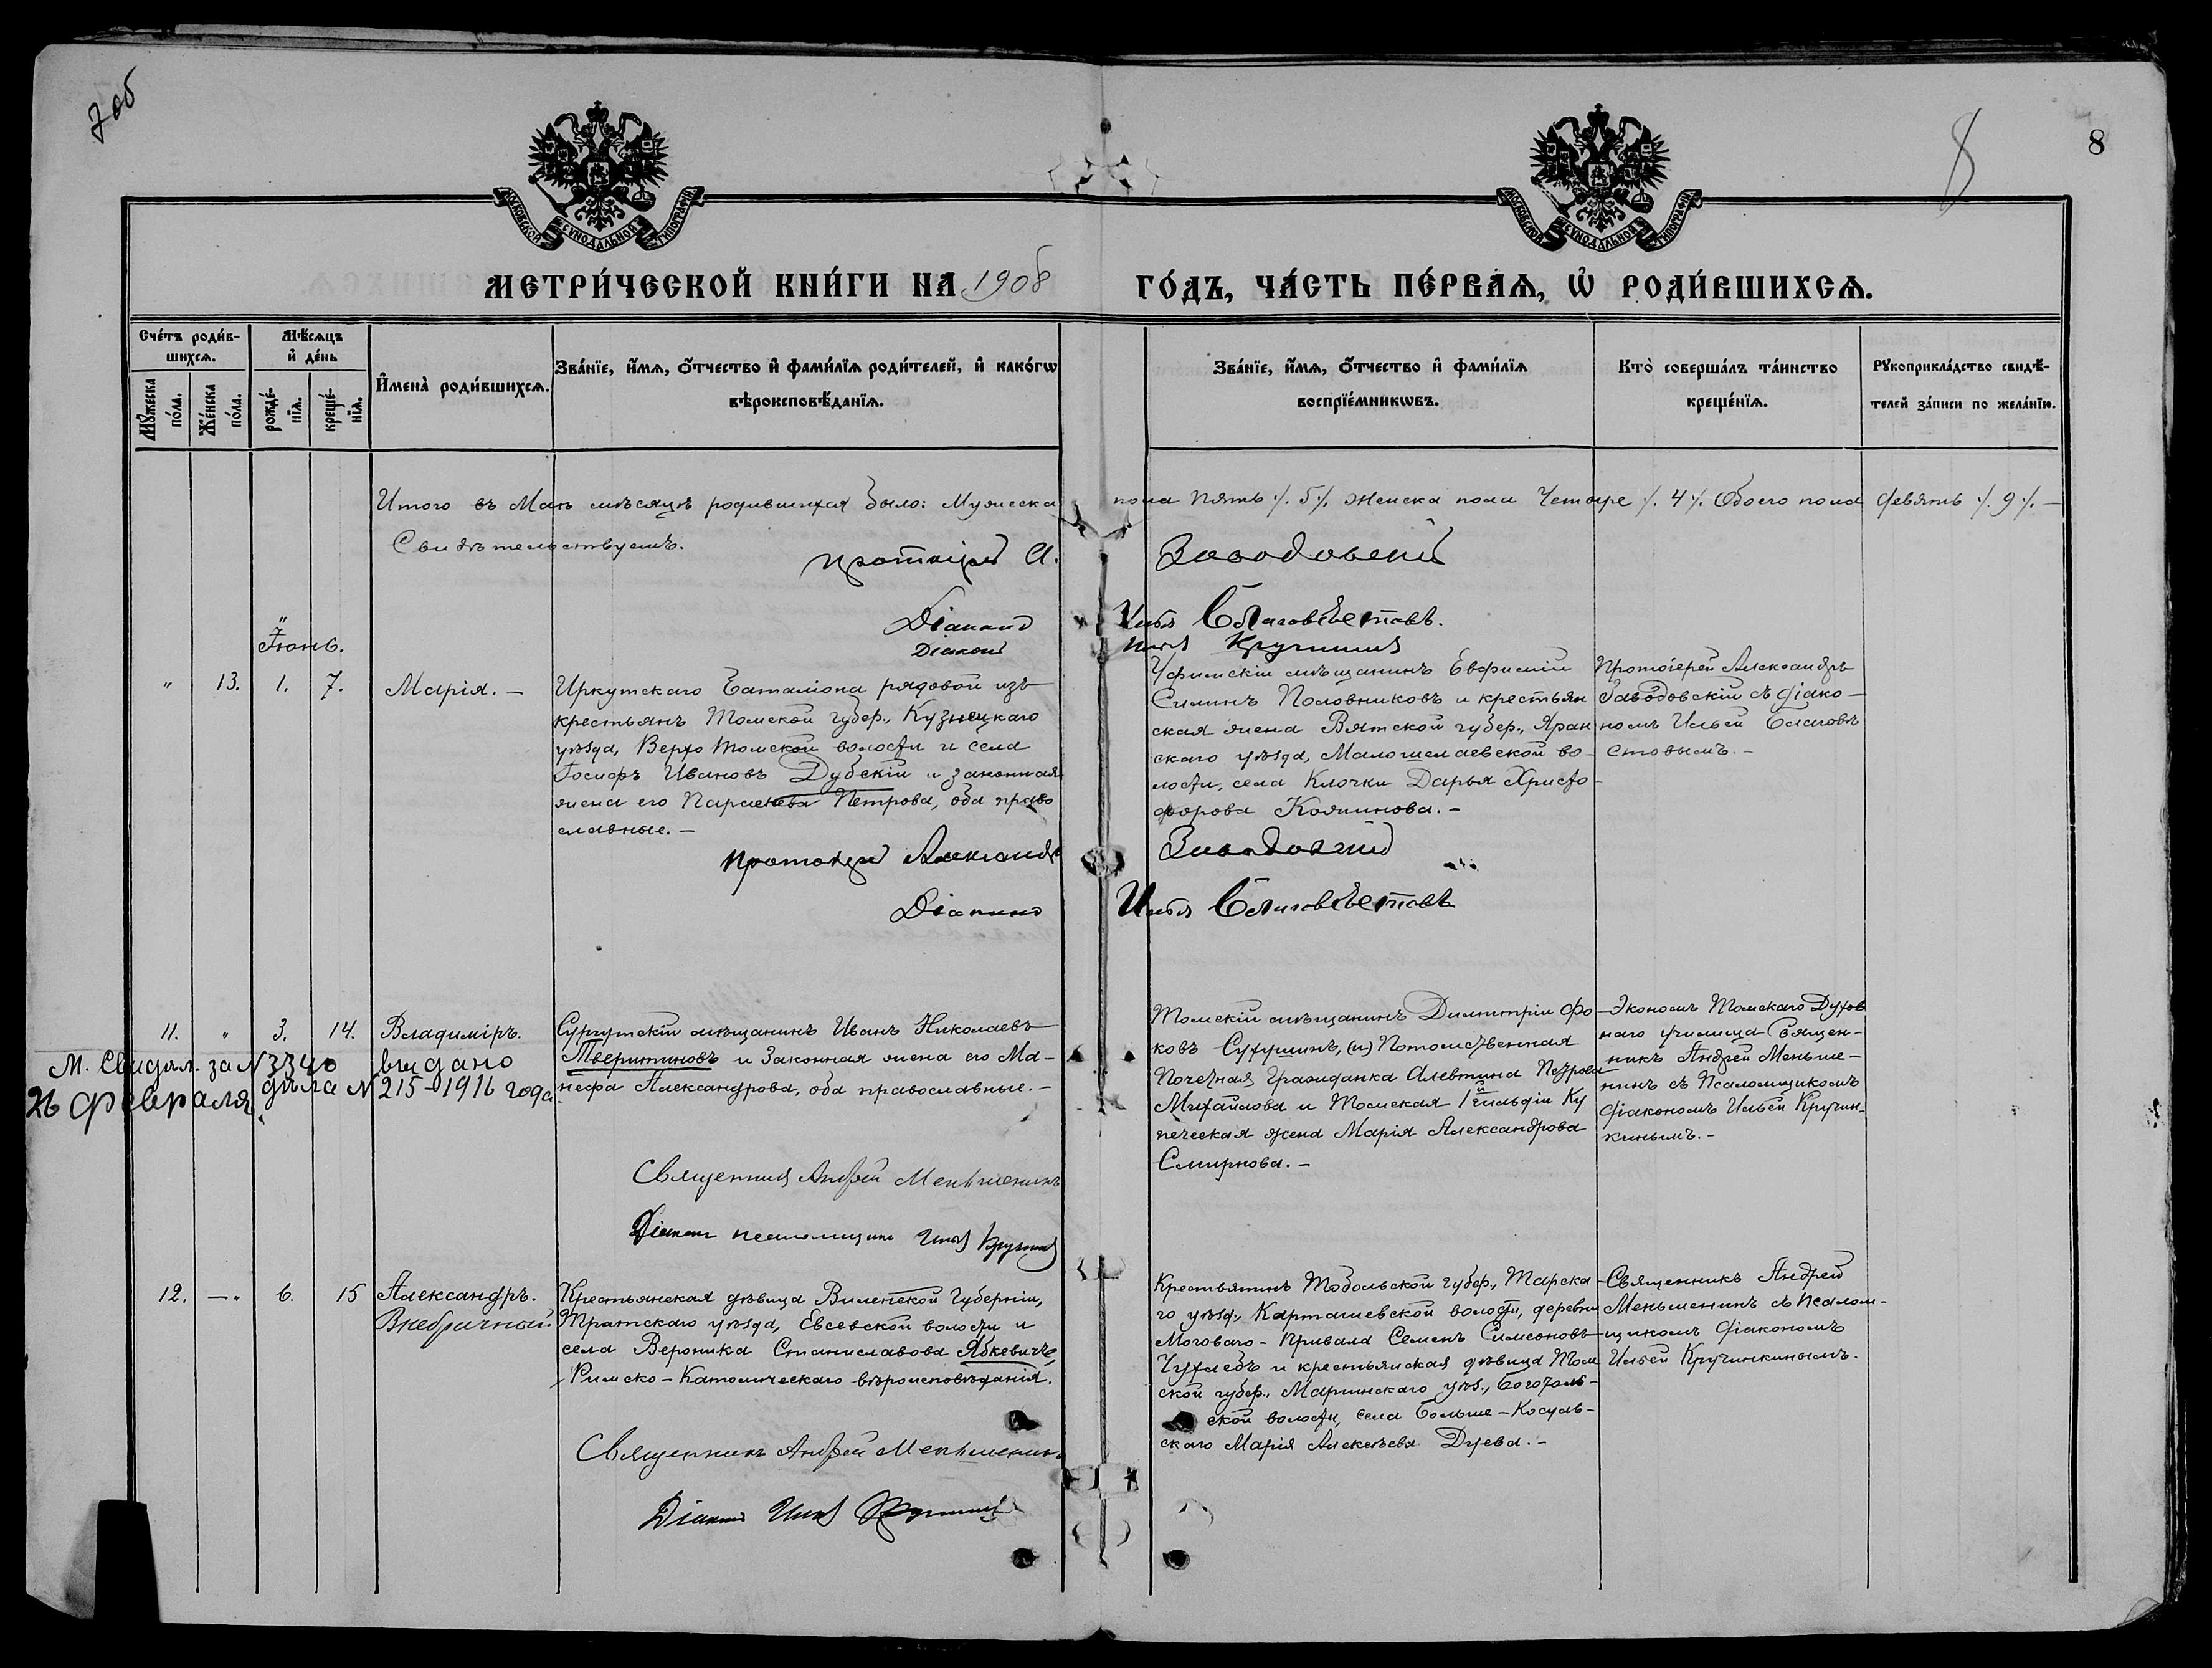 7 об
8
8
МОСКОВСКОЙ СѴНОДАЛЬНОЙ ТИПОГРАФІИ
МОСКОВСКОЙ СѴНОДАЛЬНОЙ ТИПОГРАФІИ
МЕТРИ́ЧЕСКОЙ КНИ́ГИ НА 1908 ГО́ДЪ, ЧА́СТЬ ПЕ́РВАѦ, Ѡ҆ РОДИ́ВШИХСѦ.
Сче́тъ роди́в-
шихсѧ.
Мꙋ́жеска по́ла.
Же́нска по́ла.
Мѣ́сѧцъ
и҆ де́нь
рожде́-
нїѧ.
креще́-
нїѧ.
И҆мена̀ роди́вшихсѧ.
Зва́нїе, и҆́мѧ, ѻ҆́тчество и҆ фами́лїѧ роди́телей, и҆ како́гѡ
вѣроисповѣ́данїѧ.
Зва́нїе, и҆́мѧ, ѻ҆́тчество и҆ фами́лїѧ
воспрїе́мникѡвъ.
Кто̀ соверша́лъ та́инство
креще́нїѧ.
Рꙋкоприкла́дство свидѣ́-
телей за́писи по жела́нїю.
Итого въ Маѣ мѣсяцѣ родившихся было: Мужеска пола пять ٪ 5 ٪. Женска пола Четыре ٪ 4 ٪. Обоего пола девять ٪ 9 ٪. —
Свидѣтельствуемъ.
Протоіерей А. Заводовскій
Діаконъ Илья Благовѣстовъ.
Діаконъ Илья Кручинкинъ
Іюнь.
" 13. 1. 7. Марія. —
Иркутскаго баталіона рядовой изъ
крестьянъ Томской губер., Кузнецкаго
уѣзда, Верхо Томской волости и села
Іосифъ Ивановъ Дубскій и законная
жена его Параскева Петрова, оба право
славные. —
Уфимскій мѣщанинъ Евфимій
Силинъ Половниковъ и крестьян
ская жена Вятской губер., Яран
скаго уѣзда, Малошелаевской во-
лости, села Клочки Дарья Христо-
форова Колпинова. —
Протоіерей Александръ
Заводовскій съ діако-
номъ Ильей Благовѣ
стовымъ. —
Протоіерей Александръ Заводовскій
Діаконъ Илья Благовѣстовъ
11. " 3. 14. Владиміръ.
Сургутскій мѣщанинъ Иванъ Николаевъ
Тверитиновъ и законная жена его Ма-
нефа Александрова, оба православные. —
М. Свидѣт. за N 3340 выдано
26 февраля дѣла N 215 – 1916 года
Томскій мѣщанинъ Димитрій Фо-
ковъ Сухушинъ, (и) Потомственная
Почетная Гражданка Алевтина Петрова
Михайлова и Томская 1й гильдіи Ку
печеская жена Марія Александрова
Смирнова. —
Экономъ Томскаго Духов
наго училища Священ-
никъ Андрей Меньше-
нинъ съ Псаломщикомъ
діакономъ Ильей Кручин-
кинымъ. —
Священникъ Андрей Меньшенинъ
Діаконъ псаломщикъ Илья Кручинкинъ
12. —. 6. 15 Александръ.
Внебрачный.
Крестьянская дѣвица Виленской Губерніи,
Тратскаго уѣзда, Евсевской волости и
села Вероника Станиславова Ябкевичъ,
Римско-Католическаго вѣроисповѣданія.
Крестьянинъ Тобольской губер., Тарска
го уѣзд., Карташевской волости, деревни
Моховаго-Привала Семенъ Симеоновъ
и крестьянская дѣвица Том
ской губер., Маріинскаго уѣз., Боготоль-
ской волости, села Больше-Косуль-
скаго Марія Алексѣева Дуева. —
Священникъ Андрей
Меньшенинъ съ псалом-
щикомъ діакономъ
Ильей Кручинкинымъ.
Священникъ Андрей Меньшенинъ
Діаконъ Илья Кручинкинъ